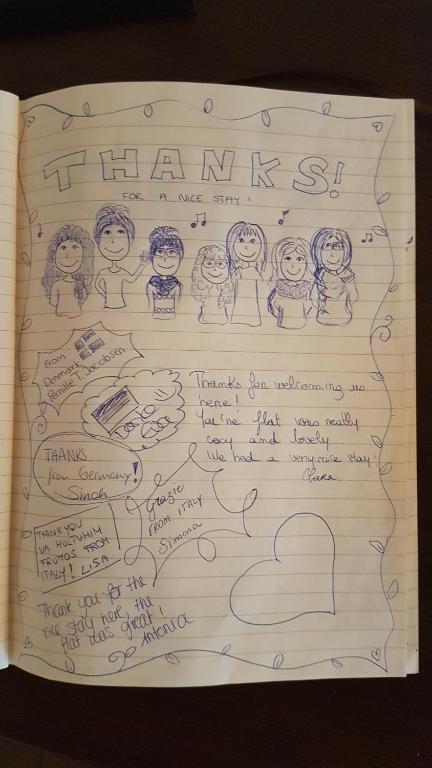 THANKS!
FOR A NICE STAY!
From
Denmark
Pernille T. Jacobsen
Thanks for welcoming us
here!
You're flat was really
cosy and lovely
We had a very nice stay!
Clara
THANKS
from Germany!
Sinah
Grazie
FROM ITALY
Simona
THANKYOU
FRUTOS FROM
ITALY! LISA
Thank you for the
nice stay here, the
flat was great!
Antonia